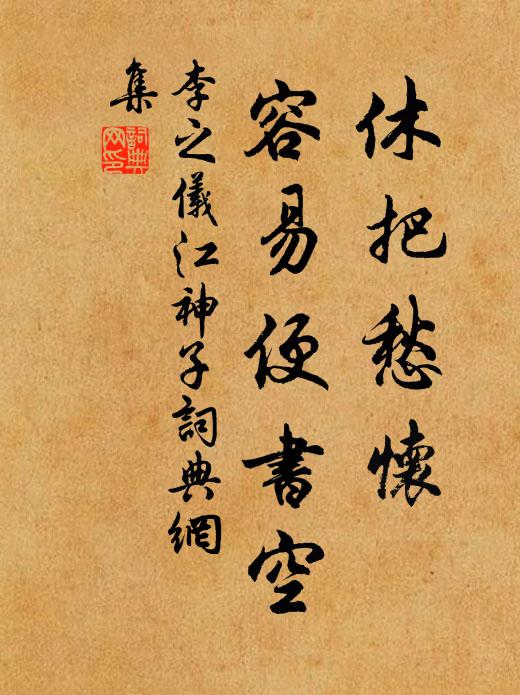 休把愁懷
容易便書空
李之儀江神子詞典網
集
詞典網印